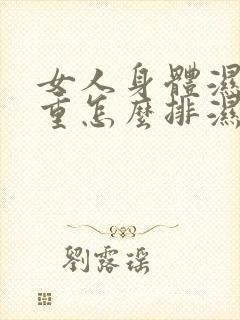 女人身體濕
重怎麼排濕
劉露瑶